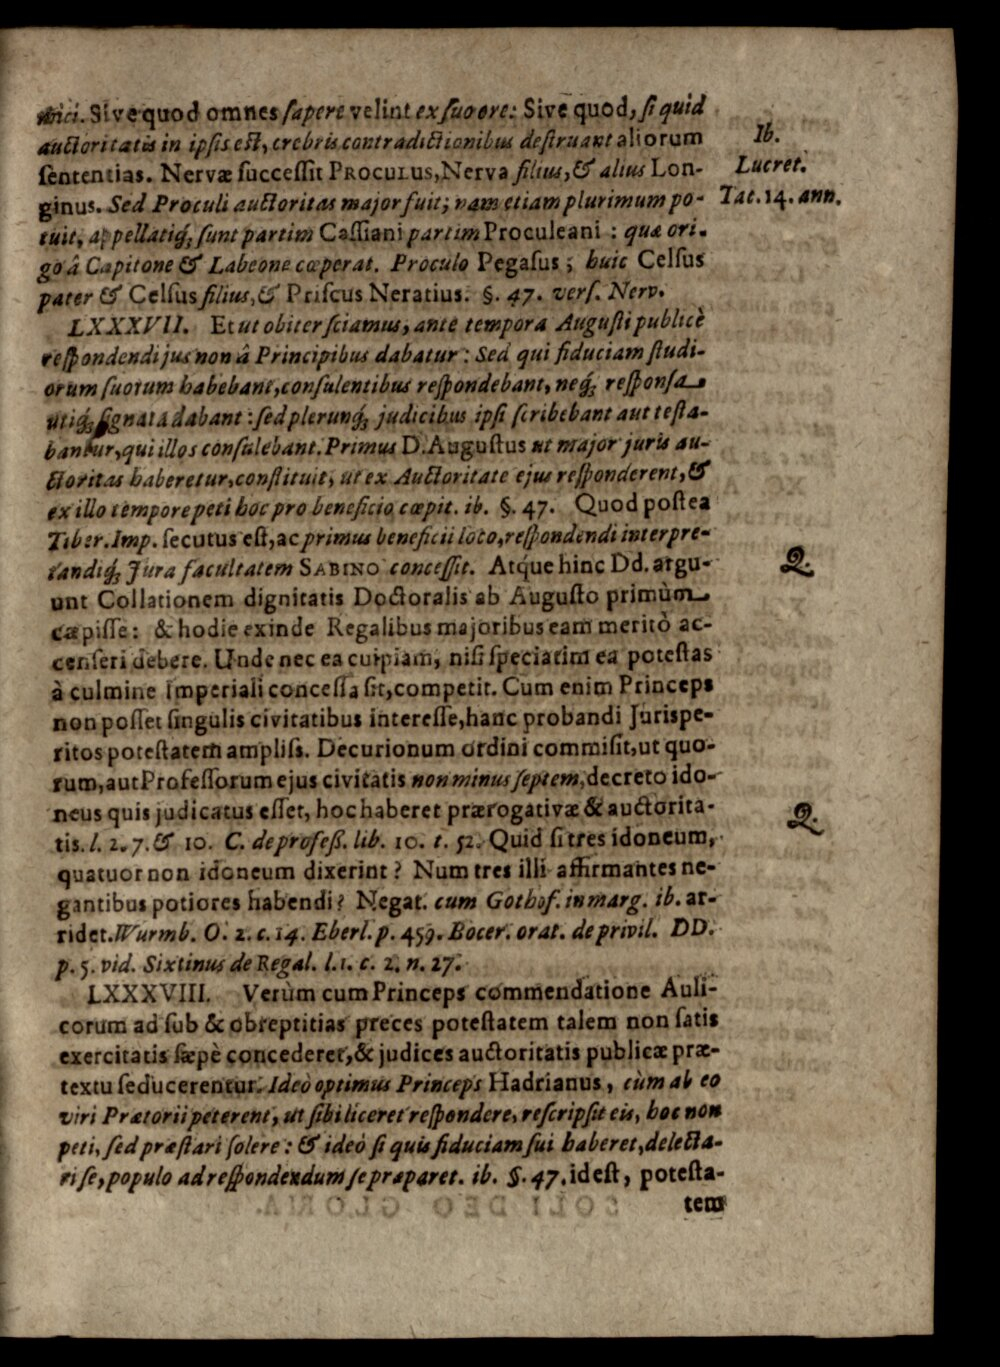 mici. Sive quod omnes ſapere velint ex ſuo ore: Sive quod, ſi quid
auctoritatis in ipſis eſt, crebris contradictionibus deſtruant aliorum
Ib.
ſententias. Nervæ ſucceſſit PROCULUS, Nerva filius, & alius Lon-
Lucret.
ginus. Sed Proculi auctoritas major fuit; nam etiam plurimum po-
Tat. 14. ann.
tuit, appellatiq́; ſunt partim Caſſiani partim Proculeani: quæ ori-
go â Capitone & Labeone cœperat. Proculo Pegaſus; huic Celſus
pater & Celſus filius, & Priſcus Neratius. §. 47. verſ. Nerv.
LXXXVII. Et ut obiter ſciamus, ante tempora Auguſti publicè
reſpondendi jus non â Principibus dabatur: Sed qui fiduciam ſtudi-
orum ſuorum habebant, conſulentibus reſpondebant, neq́; reſponſa
utiq́; ſignata dabant: ſed plerunq́; judicibus ipſi ſcribebant aut teſta-
bantur, qui illos conſulebant. Primus D. Auguſtus ut major juris au-
ctoritas haberetur, conſtituit, ut ex Auctoritate ejus reſponderent, &
ex illo tempore peti hoc pro beneficio cœpit. ib. §. 47. Quod poſtea
Tiber. Imp. ſecutus eſt, ac primus beneficii loco, reſpondendi interpre-
tandiq́; Jura facultatem SABINO conceſſit. Atque hinc Dd. argu-
2.
unt Collationem dignitatis Doctoralis ab Auguſto primùm
cæpiſſe: & hodie exinde Regalibus majoribus eam meritò ac-
cenſeri debere. Unde nec ea cuipiam, niſi ſpeciatim ea poteſtas
à culmine Imperiali conceſſa ſit, competit. Cum enim Princeps
non poſſet ſingulis civitatibus intereſſe, hanc probandi Juriſpe-
ritos poteſtatem ampliſs. Decurionum ordini commiſit, ut quo-
rum, aut Profeſſorum ejus civitatis non minus ſeptem, decreto ido-
neus quis judicatus eſſet, hoc haberet prærogativæ & auctorita-
2.
tis. l. 2. 7. & 10. C. de profeß. lib. 10. t. 52. Quid ſi tres idoneum,
quatuor non idoneum dixerint? Num tres illi affirmantes ne-
gantibus potiores habendi? Negat. cum Gothof. in marg. ib. ar-
ridet. Wurmb. O. 2. c. 14. Eberl. p. 459. Bocer. orat. de privil. DD.
p. 5. vid. Sixtinus de Regal. l. 1. c. 2. n. 27.
LXXXVIII. Verùm cum Princeps commendatione Auli-
corum ad ſub & obreptitias preces poteſtatem talem non ſatis
exercitatis ſæpè concederet, & judices auctoritatis publicæ præ-
textu ſeducerentur. Ideò optimus Princeps Hadrianus, cùm ab eo
viri Prætorii peterent, ut ſibi liceret reſpondere, reſcripſit eis, hoc non
peti, ſed præſtari ſolere: & ideò ſi quis fiduciam ſui haberet, delecta-
ri ſe, populo ad reſpondendum ſe præparet. ib. §. 47. id eſt, poteſta-
tem